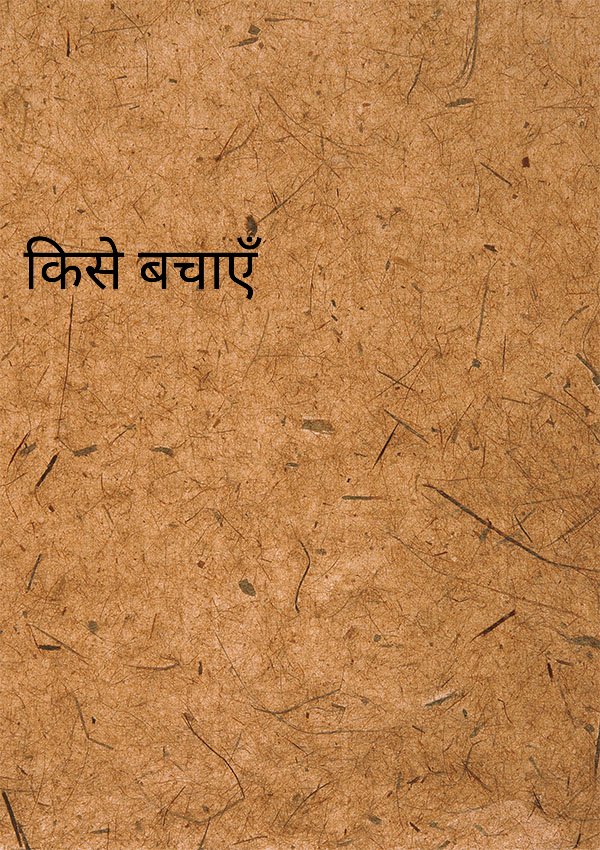 किसे बचाएँ